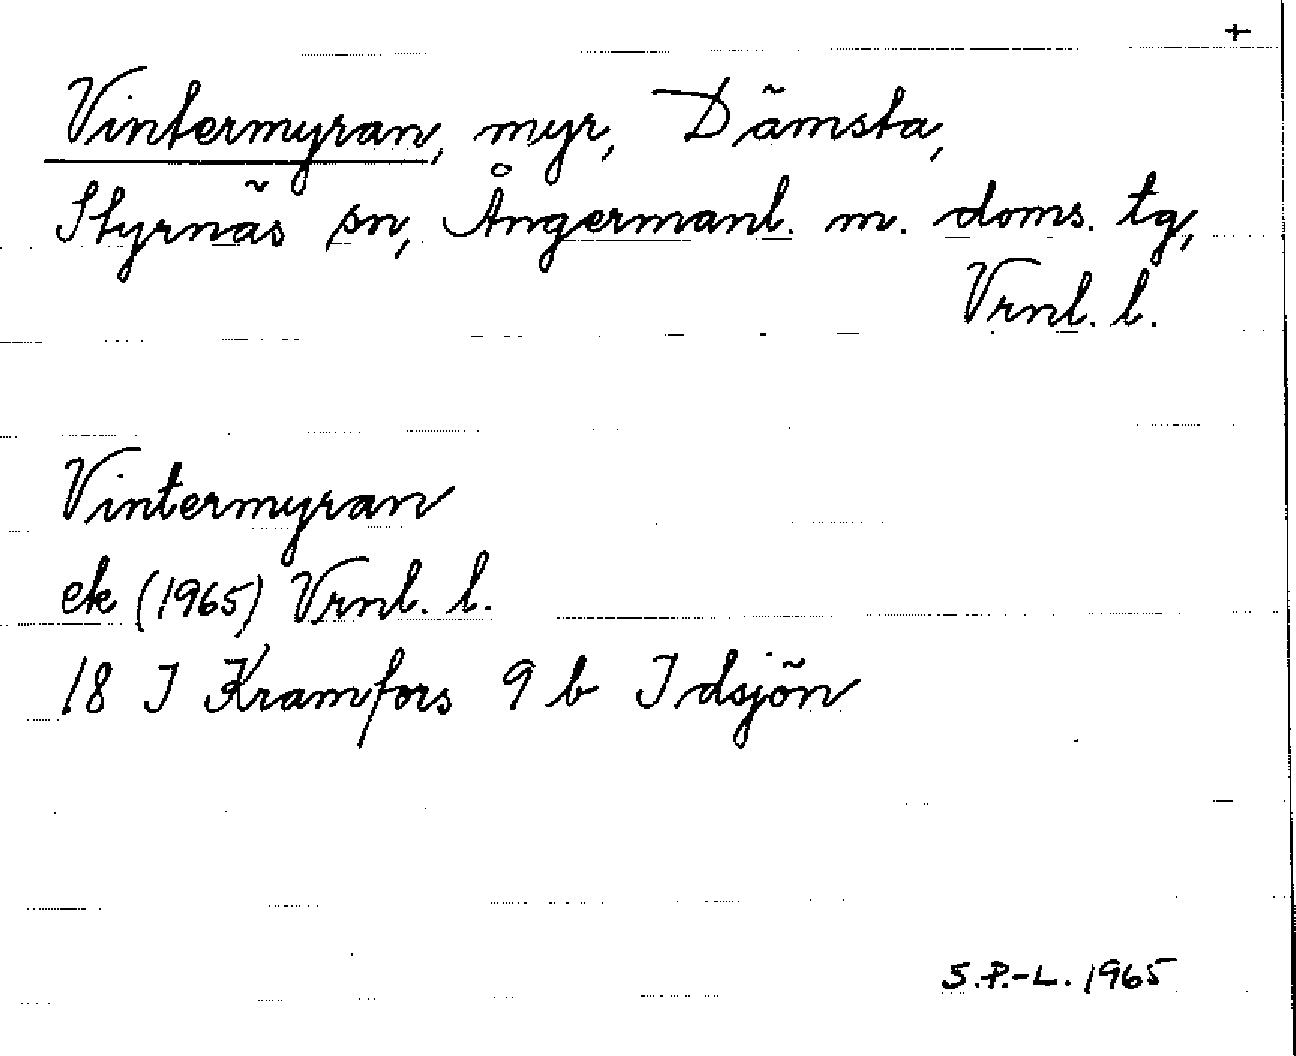 +
Vintermyran, myr, Dämsta,
Styrnäs sn, Ångermanl. m. doms. tg,
Vrnl. l.
Vintermyran
ek (1965) Vrnl. l.
18 I Kramfors 9 b Idsjön
S.P.-L. 1965